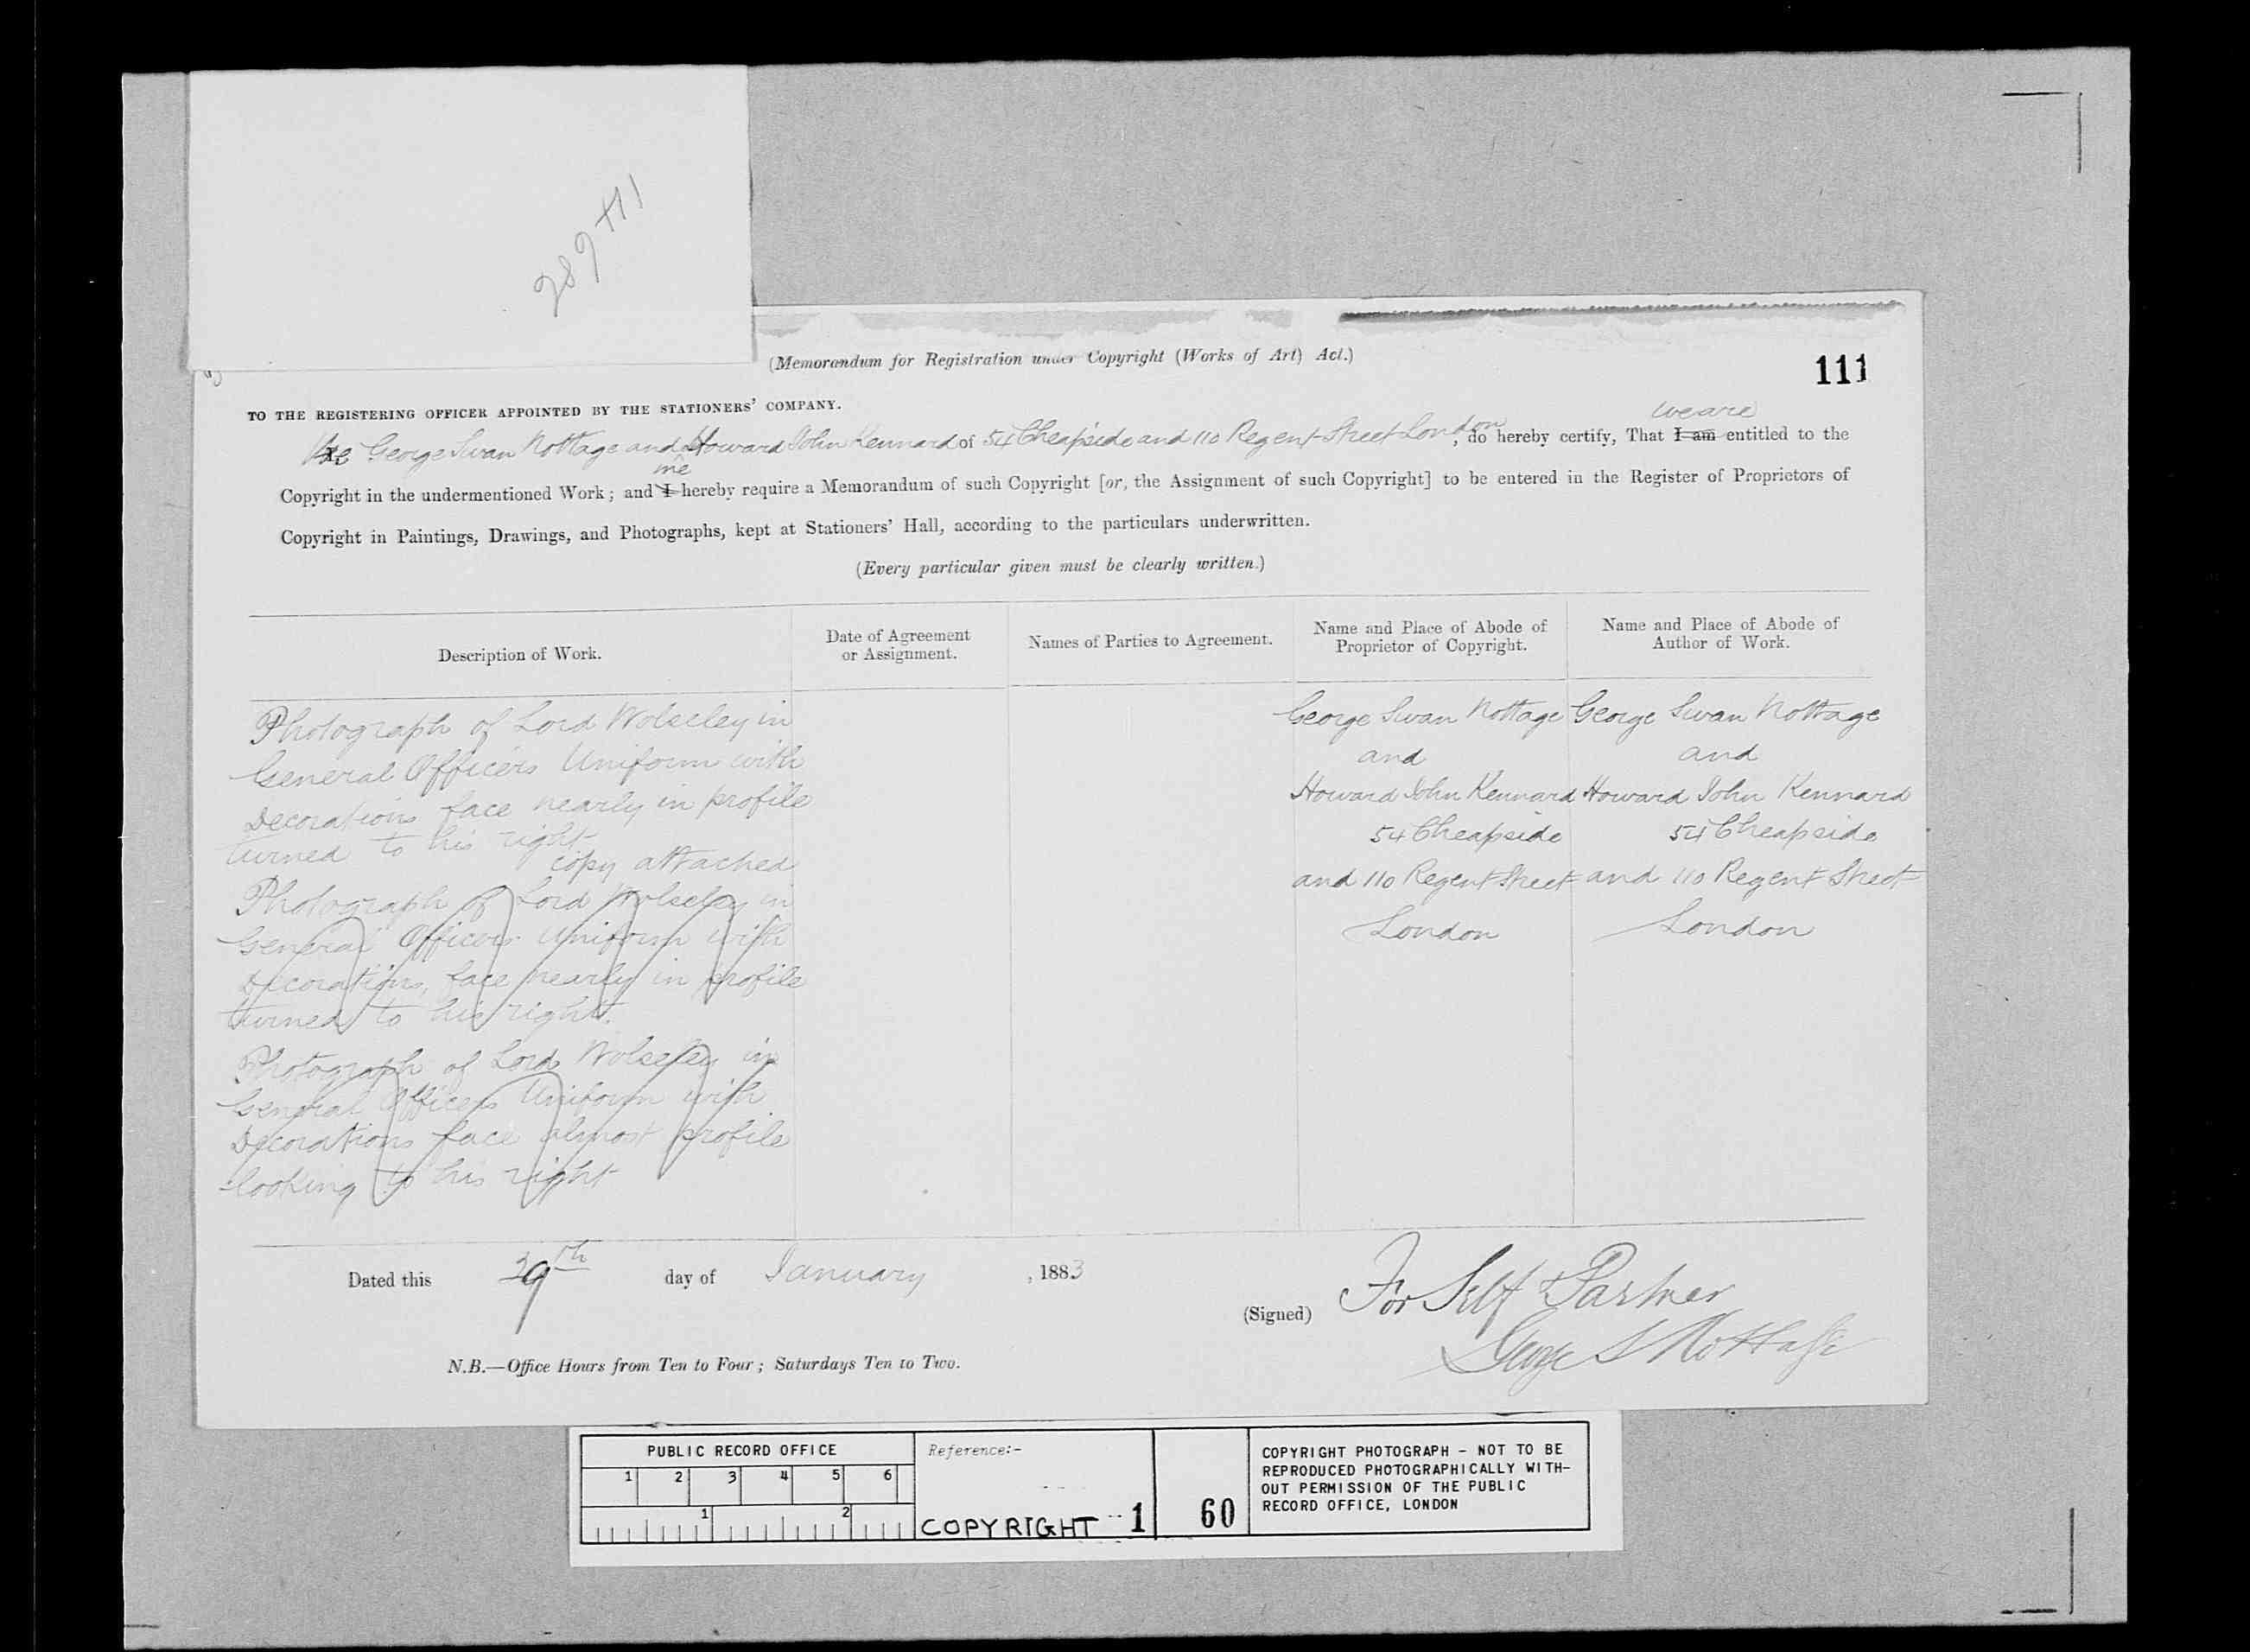 (Memorandum for Registration under Copyright (Works of Art) Act.)
111
TO THE REGISTERING OFFICER APPOINTED BY THE STATIONERS' COMPANY.
we are
We George Swan Nottage and Howard John Kennard of 54 Cheapside and 110 Regent Street London, do hereby certify, That I am entitled to the
Copyright in the undermentioned Work; and I hereby require a Memorandum of such Copyright [or, the Assignment of such Copyright] to be entered in the Register of Proprietors of
Copyright in Paintings, Drawings, and Photographs, kept at Stationers' Hall, according to the particulars underwritten.
(Every particular given must be clearly written.)
Description of Work.
Date of Agreement
or Assignment.
Names of Parties to Agreement.
Name and Place of Abode of
Proprietor of Copyright.
Name and Place of Abode of
Author of Work.
Photograph of Lord Wolseley in
General Officers Uniform with
Decorations face nearly in profile
turned to his right
copy attached
Photograph of Lord Wolseley in
General Officers Uniform with
Decorations, face nearly in profile
turned to his right.
Photograph of Lord Wolseley in
General Officers Uniform with
Decorations face almost profile
looking to his right
George Swan Nottage
and
Howard John Kennard
54 Cheapside
and 110 Regent Street
London
George Swan Nottage
and
Howard John Kennard
54 Cheapside
and 110 Regent Street
London
Dated this day of January, 1883
(Signed) For Self & Partner
George S Nottage
N.B.—Office Hours from Ten to Four; Saturdays Ten to Two.
PUBLIC RECORD OFFICE
1 2 3 4 5 6
1 2
Reference:-
COPYRIGHT 1
60
COPYRIGHT PHOTOGRAPH - NOT TO BE
REPRODUCED PHOTOGRAPHICALLY WITH-
OUT PERMISSION OF THE PUBLIC
RECORD OFFICE, LONDON